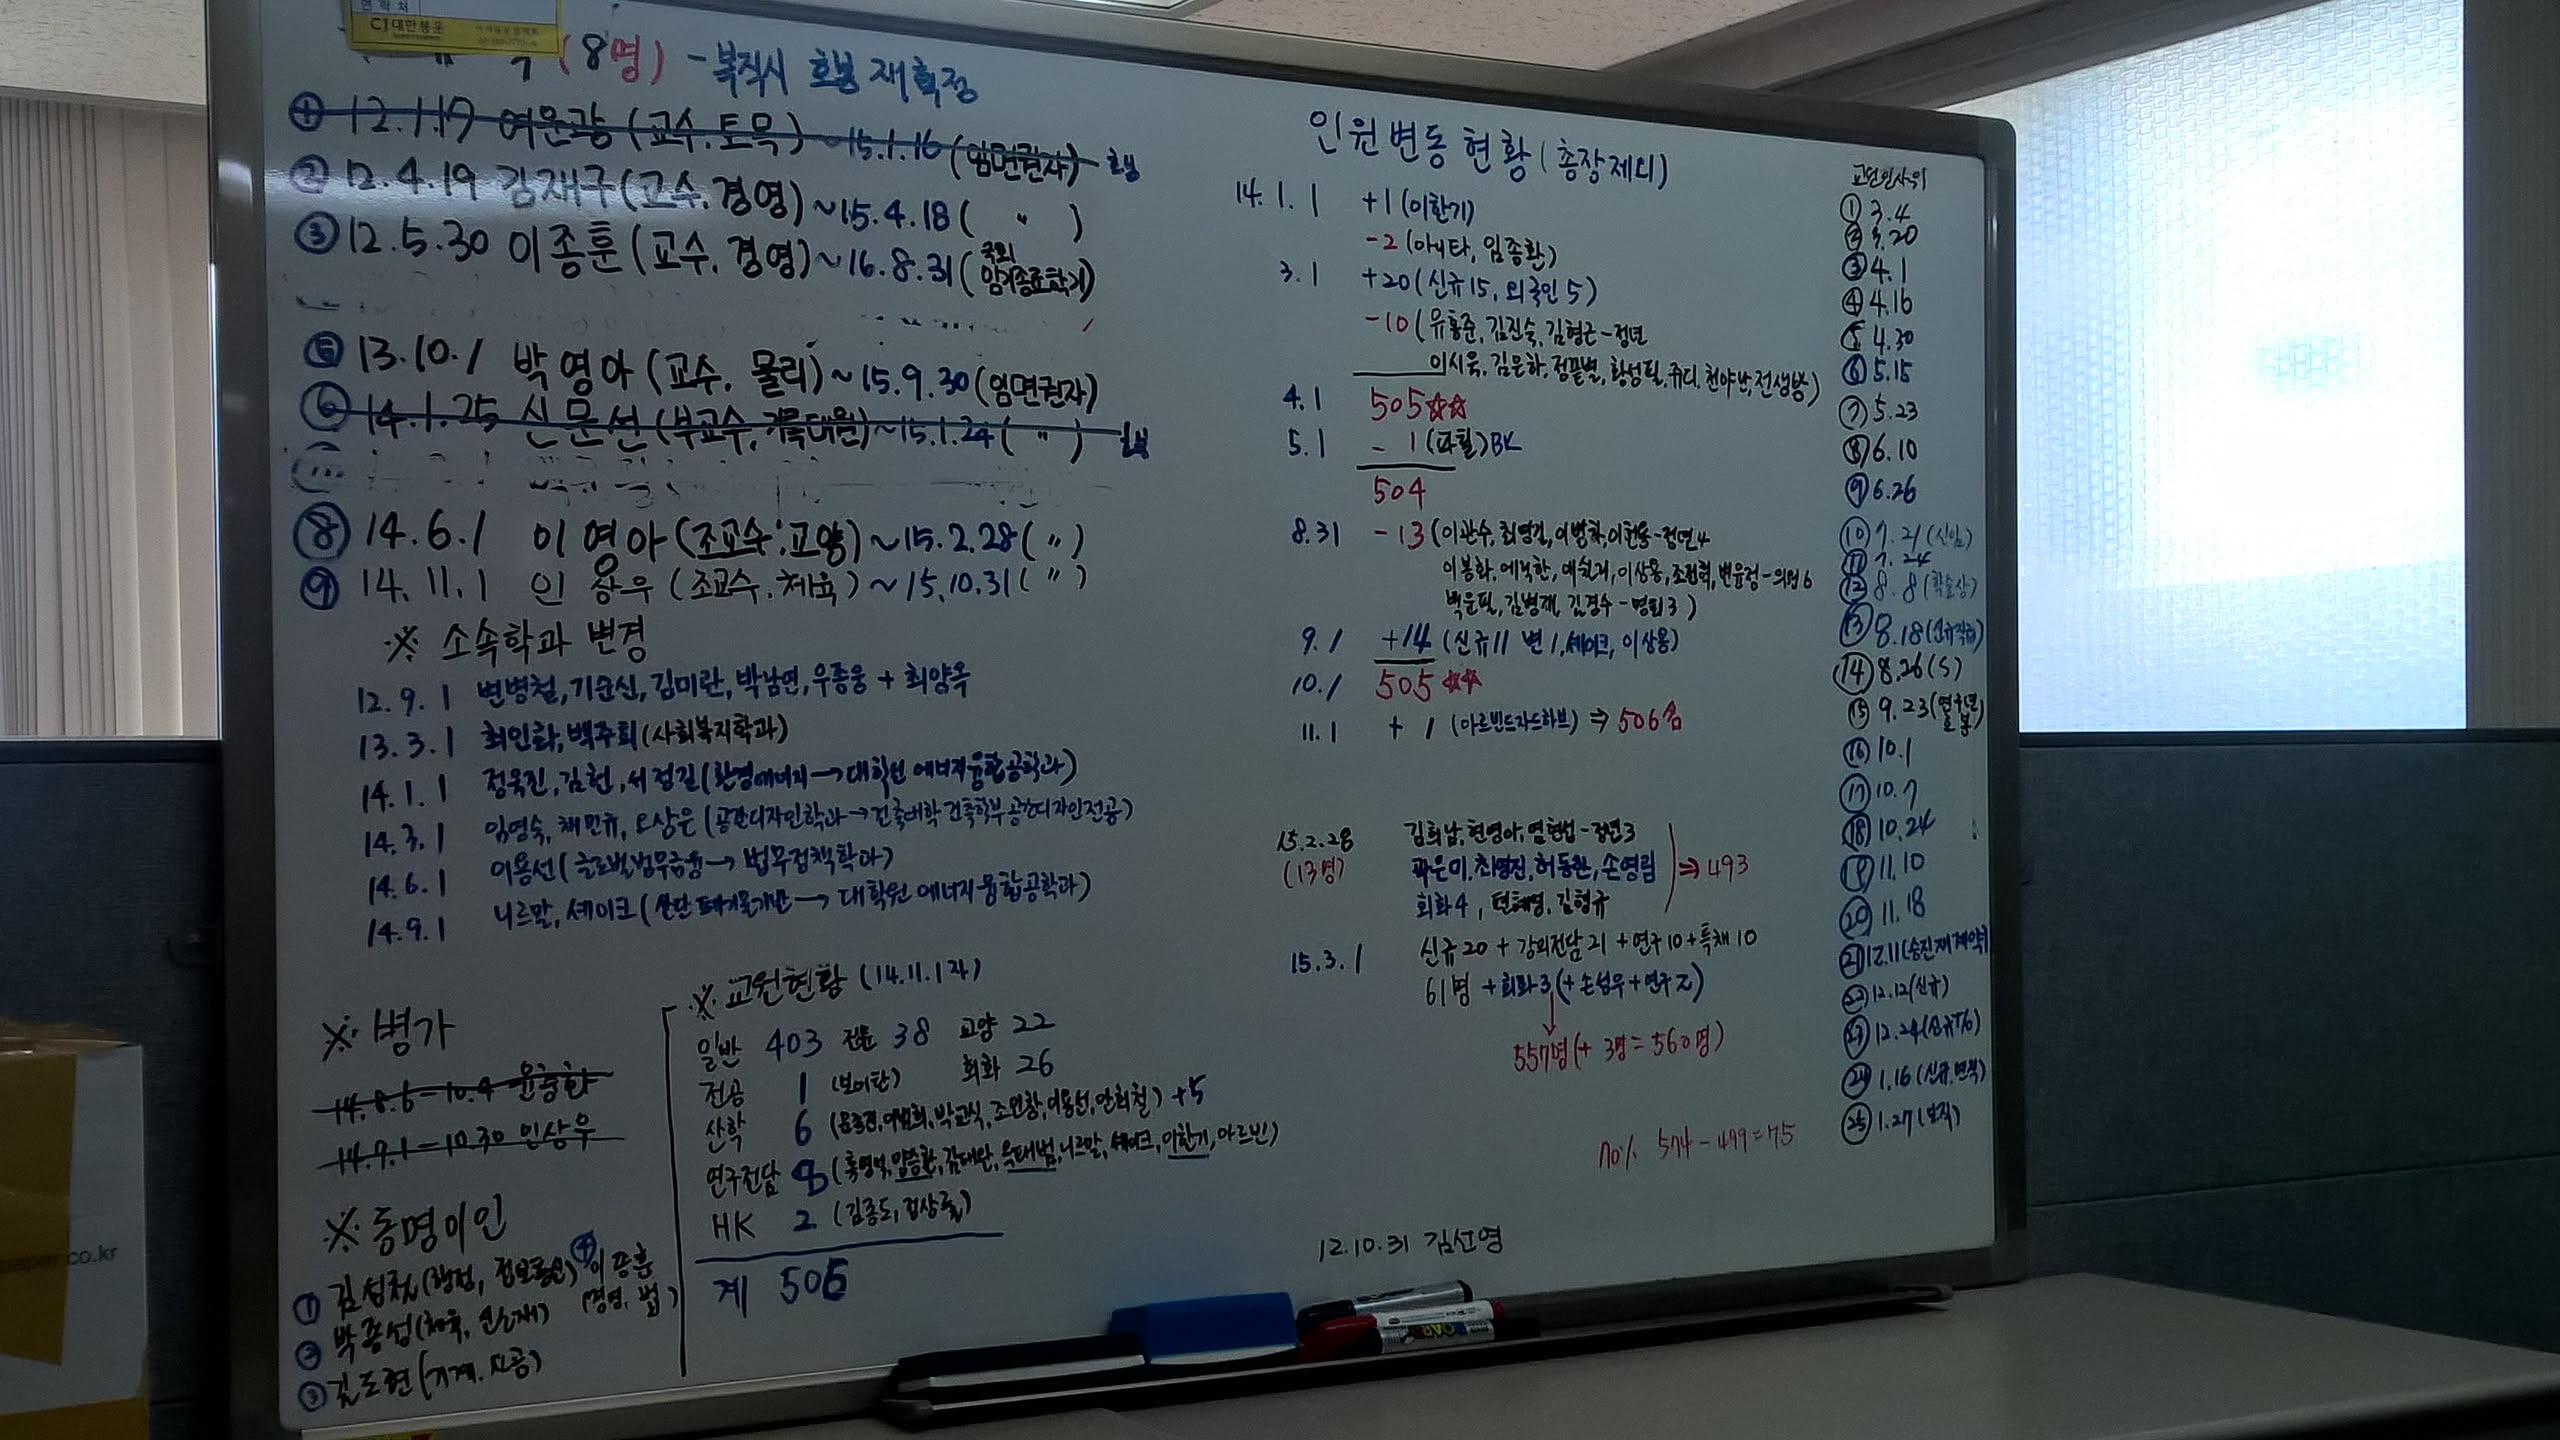 연락처
CJ대한통운
(8명) - 복직시 호봉 재획정
① 12.1.17 여운광 (교수.토목) ~15.1.16 (임면권자)
② 12.4.19 김재구 (교수.경영) ~15.4.18 ( 〃 )
③ 12.5.30 이종훈 (교수.경영) ~16.8.31 (국회 임기종료학기)
⑤ 13.10.1 박영아 (교수. 물리) ~15.9.30 (임면권자)
⑥ 14.1.25 신문선 (부교수, 기록대원) ~15.1.24 ( 〃 )
⑧ 14.6.1 이영아 (조교수.교양) ~15.2.28 ( 〃 )
⑨ 14.11.1 인상우 (조교수.체육) ~15.10.31 ( 〃 )
※ 소속학과 변경
12.9.1 변병철, 기순신, 김미란, 박남연, 우종웅 + 최양옥
13.3.1 최인화, 백주희 (사회복지학과)
14.1.1 정욱진, 김헌, 서정길 (환경에너지 → 대학원 에너지융합공학과)
14.3.1 임영숙, 채민규, 오상은 (공간디자인학과 → 건축대학 건축학부 공간디자인전공)
14.6.1 이용선 (글로벌법무금융 → 법무정책학과)
14.9.1 니르말, 셰이크 (산단 폐기물기반 → 대학원 에너지융합공학과)
※ 병가
14.8.6 - 10.4 윤충화
14.9.1 - 10.30 인상우
※ 동명이인
① 김성철 (행정, 정보통신) ④ 이종훈 (경영, 법)
② 박종성 (체육, 신소재)
③ 김도현 (기계.산공)
※ 교원현황 (14.11.1자)
일반 403 전문 38 교양 22
전공 1 (보이탄) 회화 26
산학 6 (윤종진, 이범희, 박교식, 조민창, 이용선, 안희철) +5
연구전담 8 (홍영석, 임종환, 김대완, 옥태범, 니르말, 셰이크, 이환기, 아르빈)
HK 2 (김종도, 정상률)
계 506
인원변동현황 (총장제외)
14.1.1 +1 (이환기)
-2 (아니타, 임종환)
3.1 +20 (신규15, 외국인 5)
-10 (유홍준, 김진숙, 김형근 - 정년
이시욱, 김은하, 정끝별, 황성필, 쥬디, 천야난, 전생방)
4.1 505☆☆
5.1 - 1 (파힐) BK
504
8.31 -13 (이관수, 최영길, 이방화, 이헌용 - 정년4
이봉화, 이상용, 조천혁, 변윤정 - 의원6
백운필, 김병재, 김경수 - 명퇴3)
9.1 +14 (신규11 변1, 셰이크, 이상용)
10.1 505☆☆
11.1 + 1 (아르빈드자드하브) ⇒ 506名
15.2.28 (13명) 김희남, 현영아, 염현섭 - 정년3
곽은미, 최영진, 허동찬, 손영림 ⇒ 493
회화4, 편혜영, 김형규
15.3.1 신규20 + 강의전담21 + 연구10 + 특채10
61명 + 회화3 (+ 손섬우 + 연구 2)
557명 (+ 3명 = 560명)
70% 574 - 499 = 75
12.10.31 김선영
교원인사위
① 3.4
② 3.20
③ 4.1
④ 4.16
⑤ 4.30
⑥ 5.15
⑦ 5.23
⑧ 6.10
⑨ 6.26
⑩ 7.21 (신임)
⑪ 7.24
⑫ 8.8 (학술상)
⑬ 8.18 (신규직급)
⑭ 8.26 (S)
⑮ 9.23 (연구년 일본)
⑯ 10.1
⑰ 10.7
⑱ 10.24
⑲ 11.10
⑳ 11.18
㉑ 12.11 (승진재계약)
㉒ 12.12 (신규)
㉓ 12.24 (신규T/O)
㉔ 1.16 (신규.면직)
㉕ 1.27 (보직)
paper.co.kr